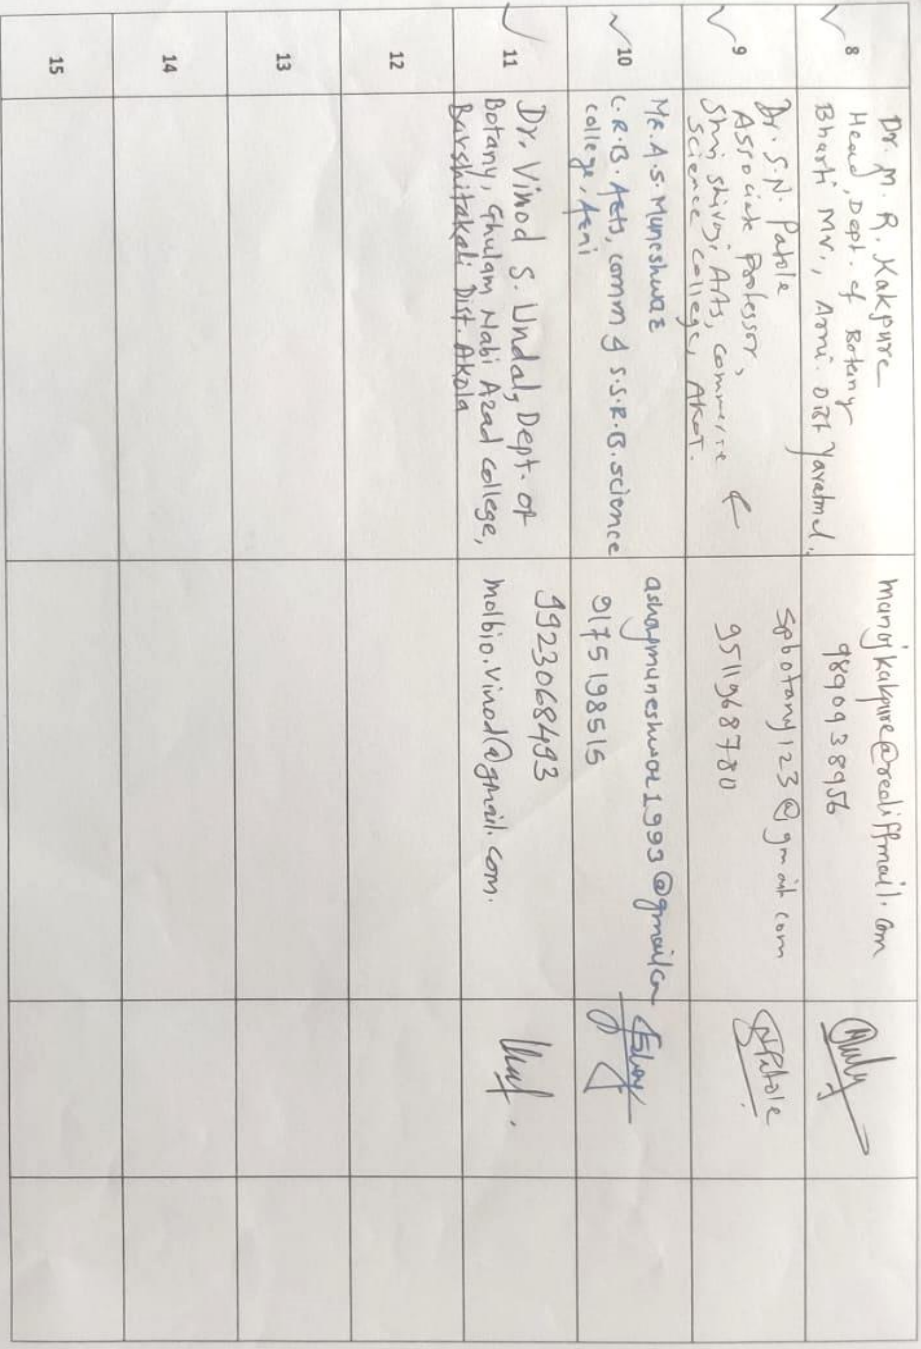 8
Dr. M. R. Kakpure
Head, Dept. of Botany
Bharti Mv., Arni. Dist Yavatmal.
manojkakpure@rediffmail.com
9890938956
9
Dr. S.N. Patole
Associate Professor,
Shri Shivaji Arts, Commerce &
Science College, Akot.
spbotany123@gmail.com
9511968780
SNPatole
10
MR. A. S. Muneshwar
C.R.B. Arts, comm & S.S.R.B. science
college, Arni
ashaymuneshwar1993@gmail.com
9175198515
11
Dr. Vinod S. Undal, Dept. of
Botany, Ghulam Nabi Azad College,
Barshitakali Dist. Akola
9923068493
molbio.vinod@gmail.com.
12
13
14
15